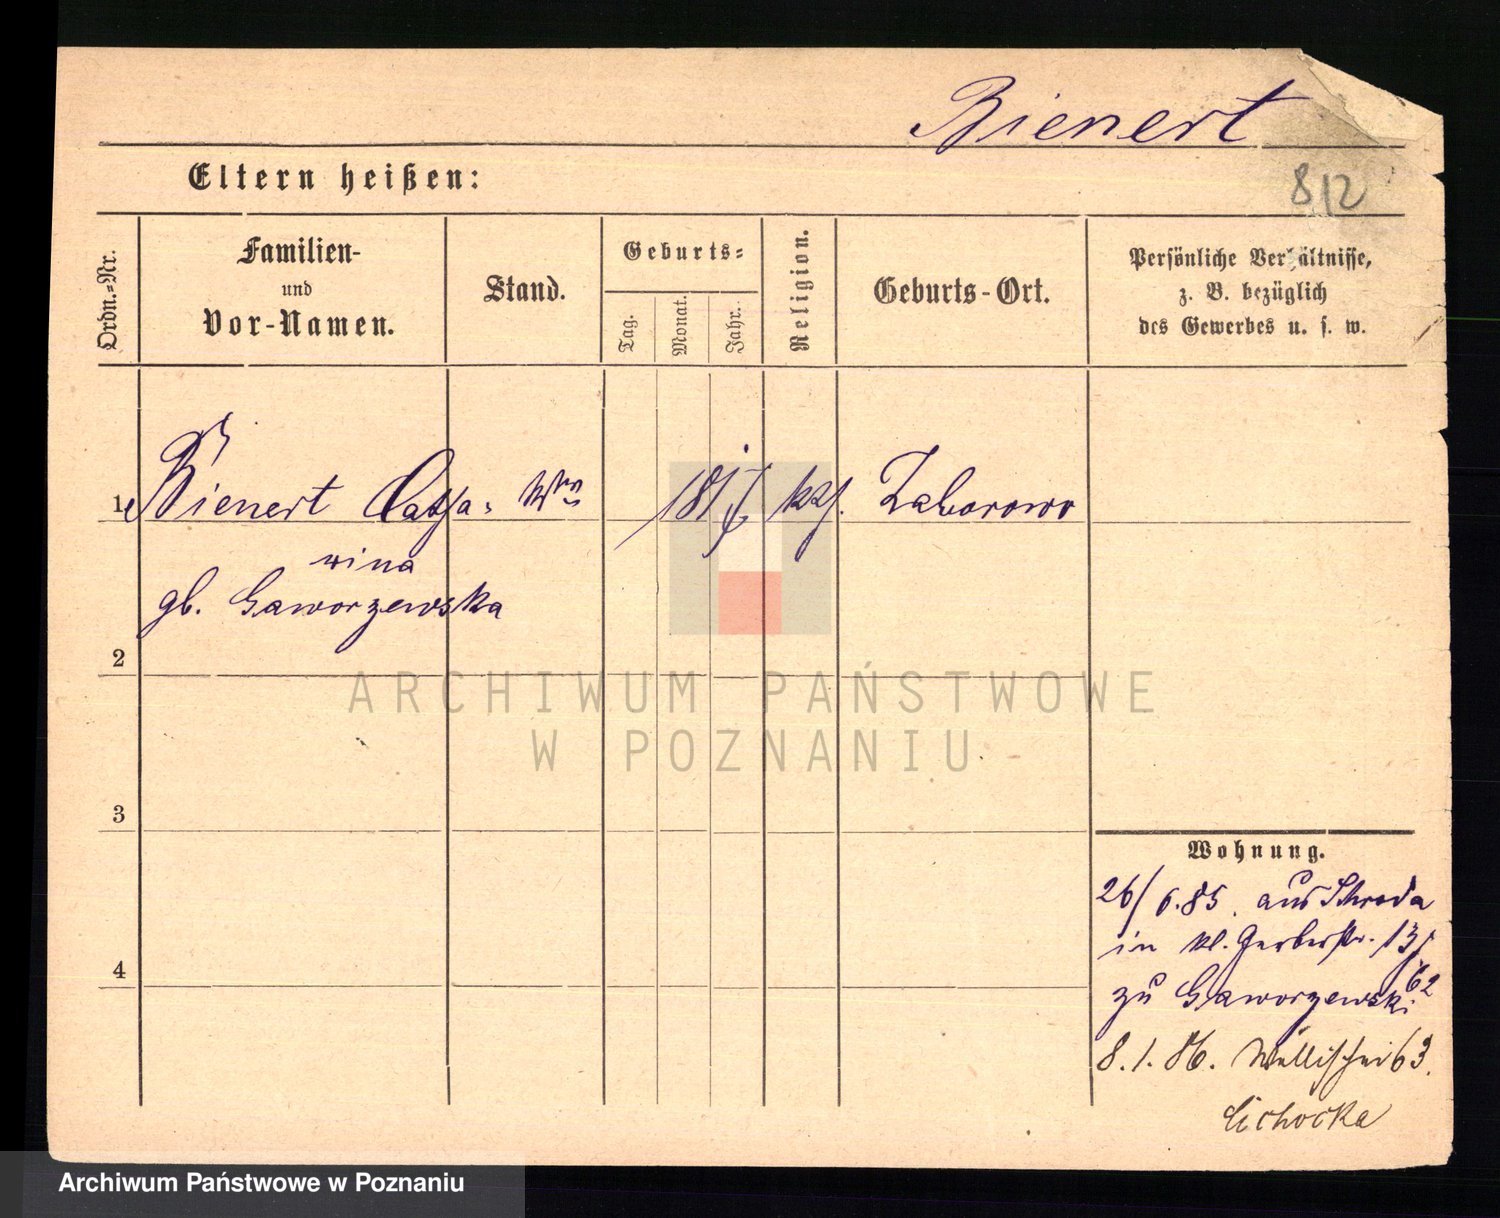 Bienert
Eltern heißen:
812
Ordn.-Nr.
Familien-
und
Vor-Namen.
Stand.
Geburts-
Tag.
Monat.
Jahr.
Religion.
Geburts-Ort.
Persönliche Verhältnisse,
z. B. bezüglich
des Gewerbes u. s. w.
1 Bienert Catha- Wwe kath. Zaborowo
rina
gb. Gaworzewska
2
ARCHIWUM PAŃSTWOWE
W POZNANIU
3
Wohnung.
26/6.85. aus Schroda
in kl. Gerberstr.
zu Gaworzewski
4
8.1.86. Wallischei 63.
Cichocka
Archiwum Państwowe w Poznaniu